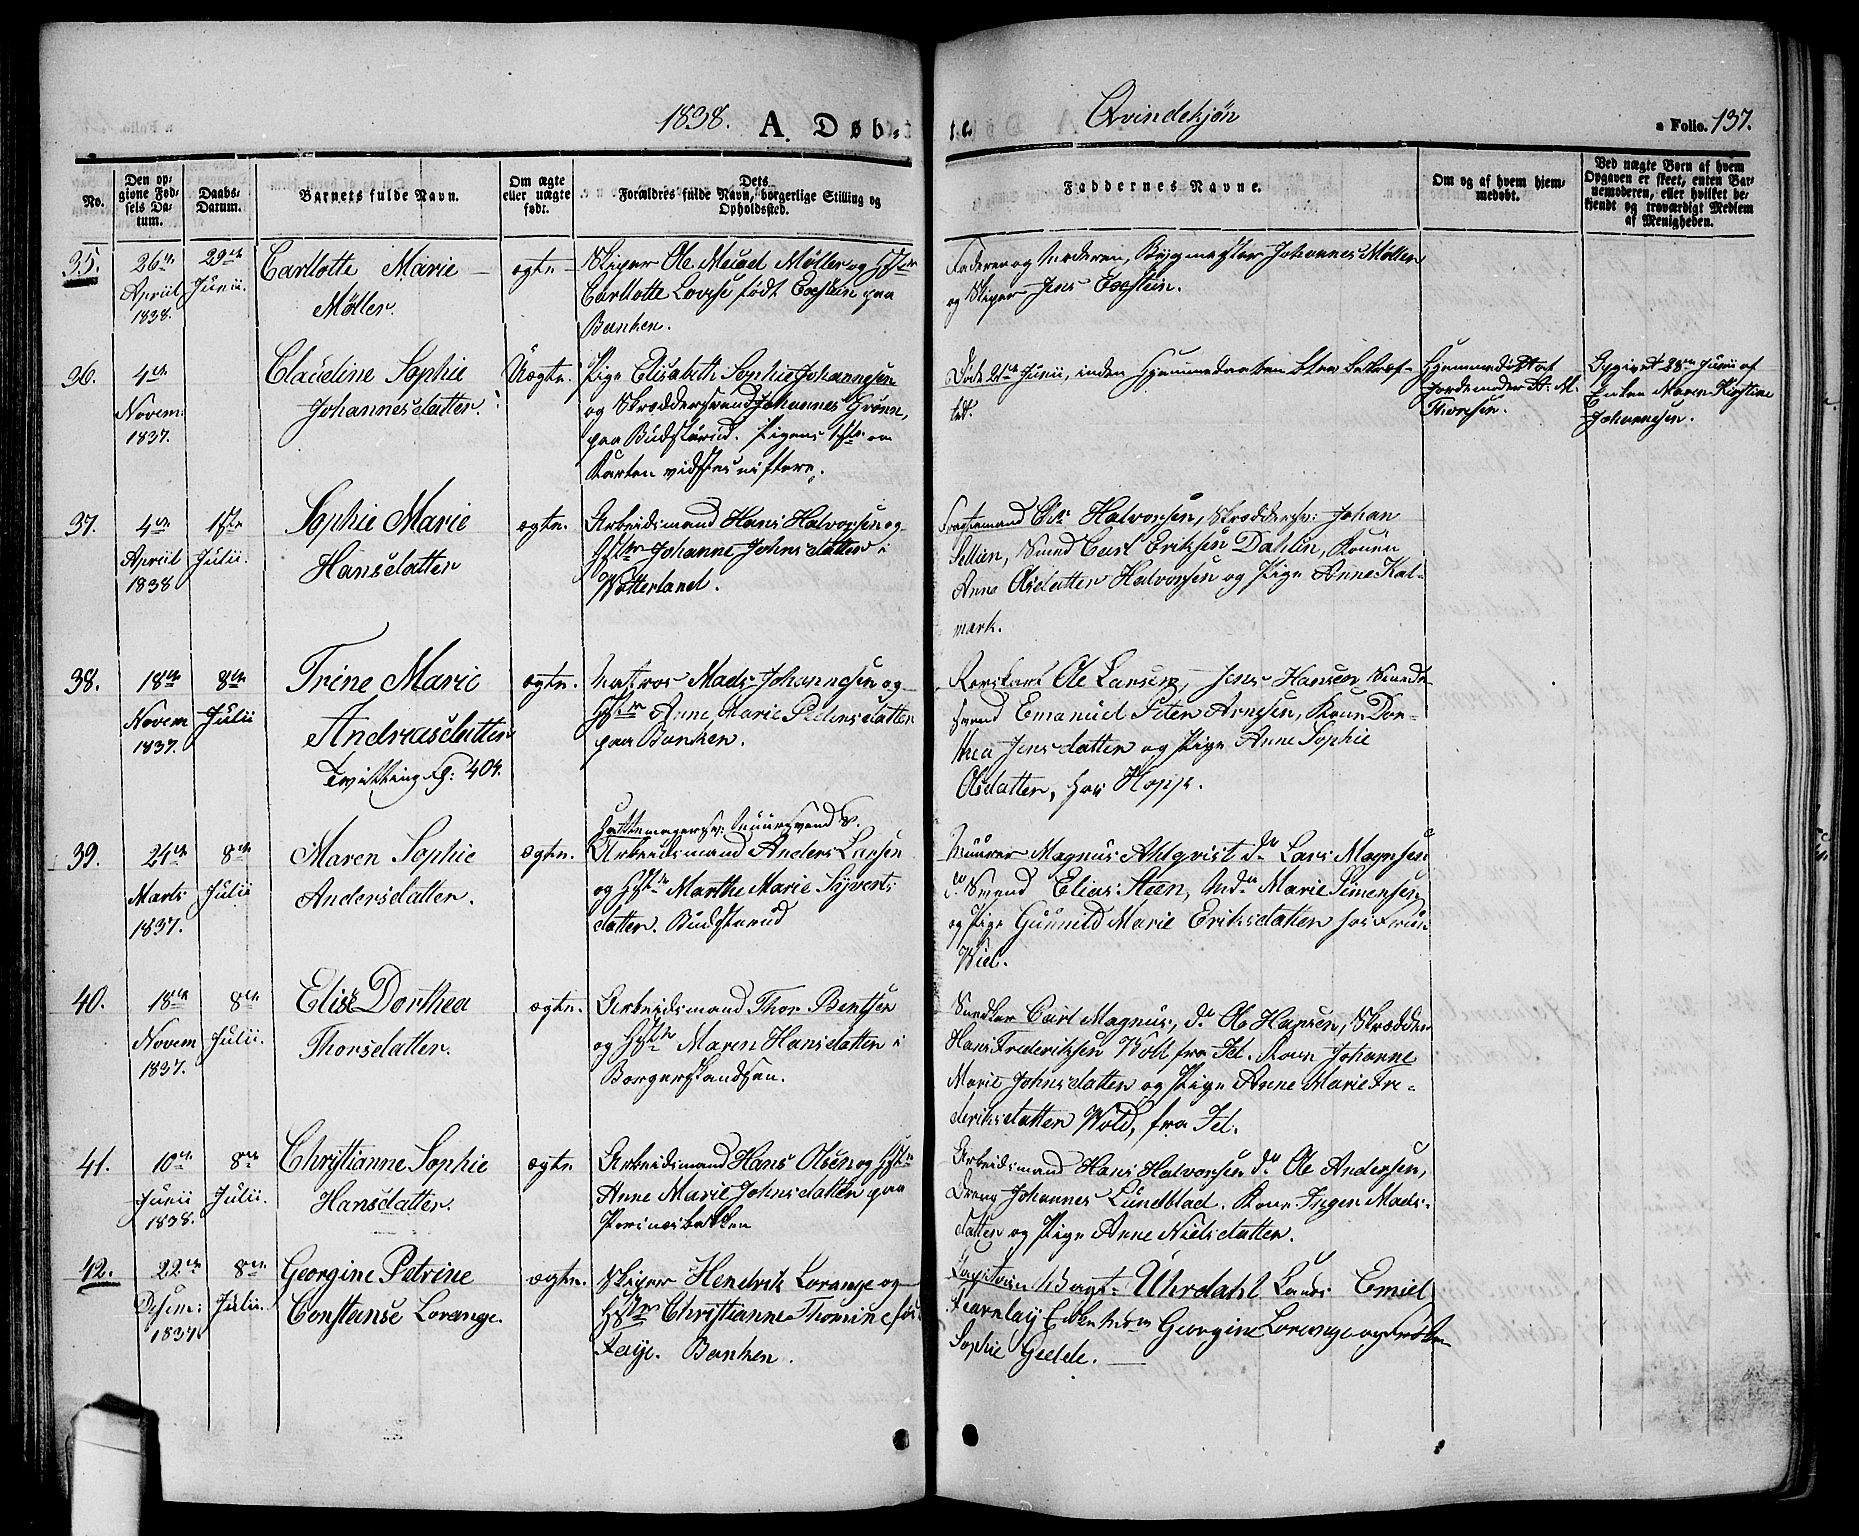 1838. A. Døb-
te. Qvindekjøn
a Folio. 137.
No.
Den op-
givne Fød-
sels Da-
tum.
Daabs-
Datum.
Barnets fulde Navn.
Om ægte
eller uægte
født.
Dets
Forældres fulde Navn, borgerlige Stilling og
Opholdssted.
Faddernes Navne.
Om og af hvem hjem-
medøbt.
Ved uægte Børn af hvem
Opgaven er skeet, enten Bar-
nemoderen, eller hvilket be-
kjendt og troværdigt Medlem
af Menigheden.
35.
26de
April
1838.
29de
Junii.
Carllotte Marie
Møller.
ægte
Skiper Ole Møller og Hstr
Carllotte Lovise født Egstein paa
Banken.
Faderen og Moderen, Bygmester Johannes Møller
og Skiper Jens Egstein.
36.
4de
Novem
1837.
Claudine Sophie
Johannesdatter.
Uægte.
Pige Elisabeth Sophie Johannesen
og Skreddersvend Johannes Grønn,
paa Budstarud. Pigens 1ste
Døde 21de Junii, inden Hjemmedaaben blev bekræf-
tet.
Hjemmedøbt af
Jordemoder M.
Thoresen.
Opgivet 28de Junii af
Enken Maren Kirstine
Johannesen.
37.
4de
April
1838
1ste
Julii.
Sophie Marie
Hansdatter
ægte.
Arbeidsmand Hans Halvorsen og
Hstr Johanne Johnsdatter i
Wotterland.
Ole Halvorsen, Skreddersv: Johan
Sellien, Smed Carl Eriksen Dahlin, Konen
Anne Olsdatter Halvorsen og Pige Anne Kal-
mark.
38.
18de
Novem
1837.
8de
Julii
Trine Marie
Andreasdatter
Tvilling 404.
ægte.
Matros Mads Johannesen og
Hstr Anne Marie Pedersdatter
paa Banken.
Ole Larsen, Jens Hansen Smede-
svend Emanuel Peter Arnesen, Kone Dor-
thea Jensdatter og Pige Anne Sophie
Olsdatter, hos Hoppe.
39.
24de
Marts
1837.
8de
Julii
Maren Sophie
Andersdatter.
ægte.
Hattemagersv: Muursvend
Arbeidsmand Anders Larsen
og Hstr Marthe Marie Syverts-
datter. Budstarud
Muurer Magnus Ahlqvist do Lars Magnsen
Smed Elias Steen, Marie Simensen
og Pige Gunnild Marie Eriksdatter hos Fru
Wiel.
40.
18de
Novem
1837.
8de
Julii.
Elise Dorthea
Thorsdatter.
ægte.
Arbeidsmand Thor Bentsen
og Hstr Maren Hansdatter i
Borgerskandsen.
Snedker Carl Magnus, do Ole Hansen, Skredder
Hans Frederiksen Wold fra Id. Kone Johanne
Marie Johnsdatter og Pige Anne Marie Fre-
deriksdatter Wold, fra Id.
41.
10de
Junii
1838.
8de
Julii.
Christianne Sophie
Hansdatter.
ægte
Arbeidsmand Hans Olsen og Hstr
Anne Marie Johnsdatter paa
Peinesbakken
Arbeidsmand Hans Halvorsen do Ole Andersen,
Dreng Johannes Lundblad. Kone Inger Mads-
datter og Pige Anne Nielsdatter.
42.
22de
Desem:
1837
8de
Julii.
Georgine Petrine
Constanse Lorange.
ægte.
Skiper Hendrik Lorange og
Hstr Christianne Thomine
Faye. Banken.
Capitain Vagt- Uhrdahl Emiel
Fearnlay Georgine Lorange og Frøken
Sophie Gedde.